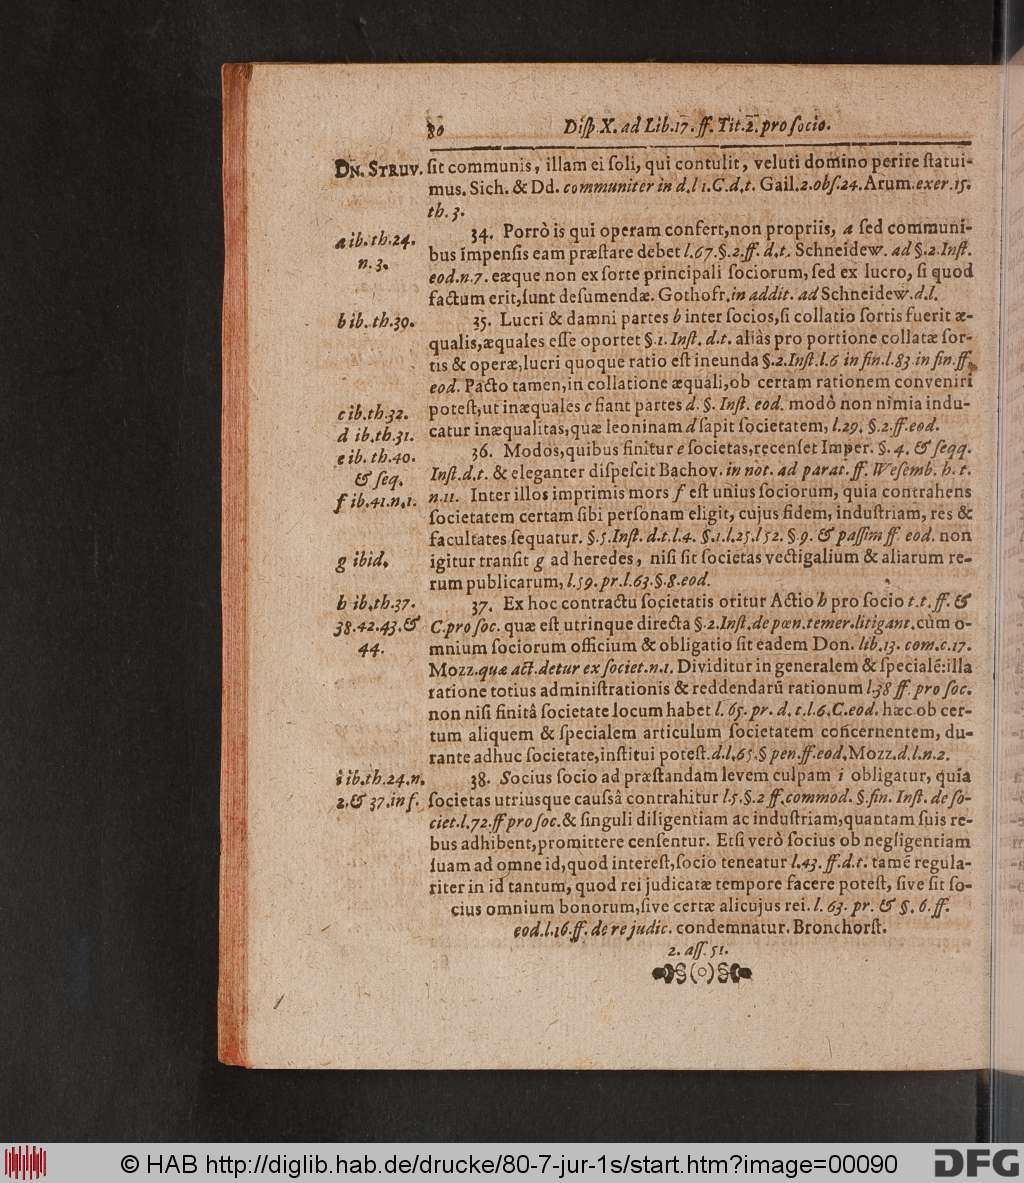 80 Diſp. X. ad Lib. 17. ff. Tit. 2. pro ſocio.
DN. STRUV. ſit communis, illam ei ſoli, qui contulit, veluti domino perire ſtatui-
mus. Sich. & Dd. communiter in d. l 1. C. d. t. Gail. 2. obſ. 24. Arum. exer. 15.
th. 3.
a ib. th. 24. 34. Porrò is qui operam confert, non propriis, a ſed communi-
n. 3. bus impenſis eam præſtare debet l. 67. §. 2. ff. d. t. Schneidew. ad §. 2. Inſt.
eod. n. 7. eæque non ex ſorte principali ſociorum, ſed ex lucro, ſi quod
factum erit, ſunt deſumendæ. Gothofr. in addit. ad Schneidew. d. l.
b ib. th. 30. 35. Lucri & damni partes b inter ſocios, ſi collatio ſortis fuerit æ-
qualis, æquales eſſe oportet §. 1. Inſt. d. t. aliàs pro portione collatæ ſor-
tis & operæ, lucri quoque ratio eſt ineunda §. 2. Inſt. l. 6 in fin. l. 83 in fin. ff.
eod. Pacto tamen, in collatione æquali, ob certam rationem conveniri
c ib. th. 32. poteſt, ut inæquales c fiant partes d. §. Inſt. eod. modò non nimia indu-
d ib. th. 31. catur inæqualitas, quæ leoninam d ſapit ſocietatem, l. 29. §. 2. ff. eod.
e ib. th. 40. 36. Modos, quibus finitur e ſocietas, recenſet Imper. §. 4. & ſeqq.
& ſeq. Inſt. d. t. & eleganter diſpeſcit Bachov. in not. ad parat. ff. Weſemb. h. t.
f ib. 41. n. 1. n. 11. Inter illos imprimis mors f eſt unius ſociorum, quia contrahens
ſocietatem certam ſibi perſonam eligit, cujus fidem, induſtriam, res &
facultates ſequatur. §. 5. Inſt. d. t. l. 4. §. 1. l. 25. l 52. §. 9. & paſſim ff. eod. non
g ibid. igitur tranſit g ad heredes, niſi ſit ſocietas vectigalium & aliarum re-
rum publicarum, l. 59. pr. l. 63. §. 8. eod.
h ib. th. 37. 37. Ex hoc contractu ſocietatis oritur Actio h pro ſocio t. t. ff. &
38. 42. 43. & C. pro ſoc. quæ eſt utrinque directa §. 2. Inſt. de pœn. temer. litigant. cùm o-
44. mnium ſociorum officium & obligatio ſit eadem Don. lib. 13. com. c. 17.
Mozz. quæ act. detur ex ſociet. n. 1. Dividitur in generalem & ſpecialē: illa
ratione totius adminiſtrationis & reddendarū rationum l. 38 ff. pro ſoc.
non niſi finitâ ſocietate locum habet l. 65. pr. d. t. l. 6. C. eod. hæc ob cer-
tum aliquem & ſpecialem articulum ſocietatem concernentem, du-
rante adhuc ſocietate, inſtitui poteſt. d. l. 65. § pen. ff. eod. Mozz. d. l. n. 2.
i ib. th. 24. n. 38. Socius ſocio ad præſtandam levem culpam i obligatur, quia
2. & 37. in f. ſocietas utriusque cauſsâ contrahitur l 5. §. 2 ff. commod. §. fin. Inſt. de ſo-
ciet. l. 72. ff pro ſoc. & ſinguli diligentiam ac induſtriam, quantam ſuis re-
bus adhibent, promittere cenſentur. Etſi verò ſocius ob negligentiam
ſuam ad omne id, quod intereſt, ſocio teneatur l. 43. ff. d. t. tamē regula-
riter in id tantum, quod rei judicatæ tempore facere poteſt, ſive ſit ſo-
cius omnium bonorum, ſive certæ alicujus rei. l. 63. pr. & §. 6. ff.
eod. l. 16. ff. de re judic. condemnatur. Bronchorſt.
2. aſſ. 51.
© HAB http://diglib.hab.de/drucke/80-7-jur-1s/start.htm?image=00090 DFG